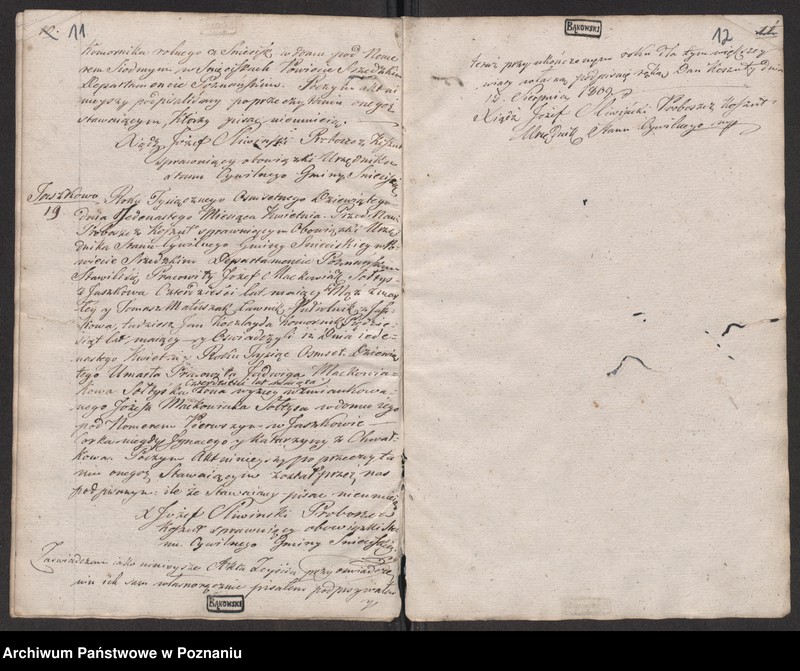 12. 11
Komornika rolnego z Śniecisk w domu pod Nume
rem Siodmym w Śnieciskach Powiecie Szredzkim
Departamencie Poznanskim. Poczym akt ni
nieyszy podpisalismy po przeczytaniu onegoż
Stawaiącym, którzy pisać nieumieią.
Xiądz Józef Sliwinski Proboszcz Koszut
sprawuiący obowiązki Urzędnika
Stanu Cywilnego Gminy Śnieciskiey
Jaszkowo
19
Roku Tysiącznego Osmsetnego Dziewiątego
dnia Jedenastego Miesiąca Kwietnia. Przed Nami
Proboszcz Koszut sprawuiącym Obowiązki Urzę
dnika Stanu Cywilnego Gminy Śnieciskiey w Po
wiecie Szredzkim Departamencie Poznanskim
Stawiliść Pracowity Józef Mackowiak Sołtys
z Jaszkowa Czterdzieści lat maiący Mąż zmar
łey y Tomasz Matuszak Ławnik z Jasz
kowa, tudziesz Jan Komornik
siąt lat maiący y Oświadczyli iż Dnia iede
nastego Kwietnia Roku Tysiąc Osmset Dziewią
tego Umarła Pracowita Jadwiga Mackowia
kowa Sołtyska Czterdzieści lat maiąca Żona wyżey wzmiankowa
nego Józefa Mackowiaka Sołtysa w domu iego
pod Numerem Pierwszym w Jaszkowie
Corka niegdy Ignacego y Katarzyny z Chwał
kowa. Poczym Akt ninieyszy po przeczyta
niu onegoż Stawaiącym został przez nas
podpisanym: ile że Stawaiący pisac nieumieią
X Jozef Sliwinski Proboszcz
Koszut sprawuiący obowiązki Sta
nu Cywilnego Gminy Śnieciskiey
Zaświadczam iako ninieysze Akta Zeyścia przy oświadcze
niu ich sam własnoręcznie pisałem podpisywałem
BĄKOWSKI
BĄKOWSKI
12 11
teraz przy ukończonym roku dla tym większey
wiary własną podpisuię ręką Dan Koszuty dnia
14. Sierpnia 1809.
Xiądz Józef Sliwinski Proboszcz Koszut
Urzędnik Stanu Cywilnego mp
Archiwum Państwowe w Poznaniu